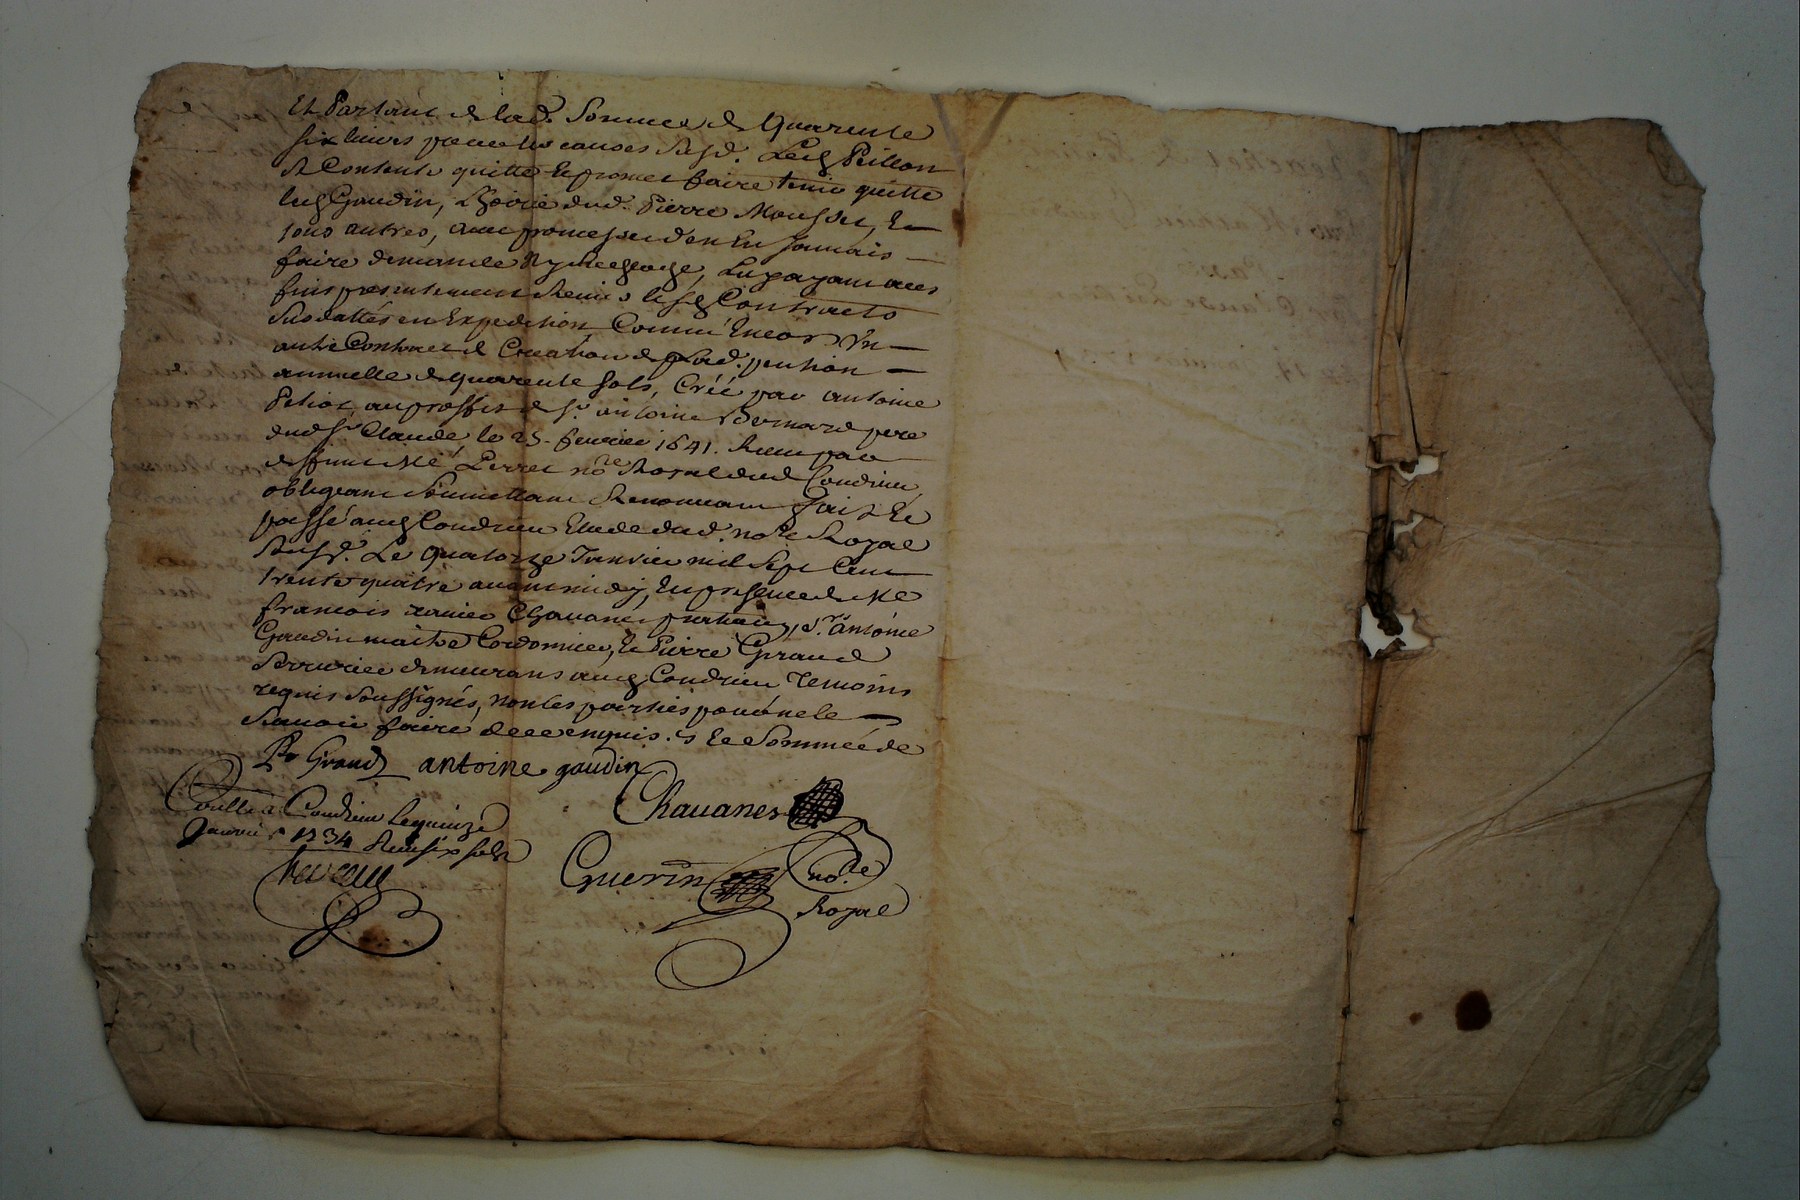 Et Partant de lad. Somme de Quarente
six livres pour les causes susd. Led. Peillon
se Contente quitte et promet faire tenir quitte
led. Gaudin, L'hoirie dud. Pierre Mousset, Et
tous autres, avec promesse de n'en Jamais
faire demande Ny recherche, Luy ayant aux
fins presentement Remis lesd. Contracts
Susdattés en Expedition Comme Encor Un
autre Contract de Création de lad. pention
annuelle de quarente sols, Créé par antoine
Peliot au proffit de Sr. antoine Bernard pere
dud. Sr. Claude, le 25. fevrier 1641. Receu par
deffunt Me Perret nore Royal dud. Condrieu
obligeant Soumettant Renonceant fait Et
passé aud. Condrieu Etude dud. nore Royal
Susd. Le quatorze Janvier mil Sept Cent
trente quatre avant midy, En presence de Me
francois xavier Chavanes praticien, Sr. antoine
Gaudin maitre Cordonnier, Et Pierre Giraud
Serrurier demeurans aud. Condrieu Temoins
requis Soussignés, non les parties pour ne le
Scavoir faire de ce enquis.s Et Sommée de
Pre Giraud antoine gaudin
Chavanes
Conllé à Condrieu le quinze
Janvier 1734 Receu six sols
Guerin nore
Royal